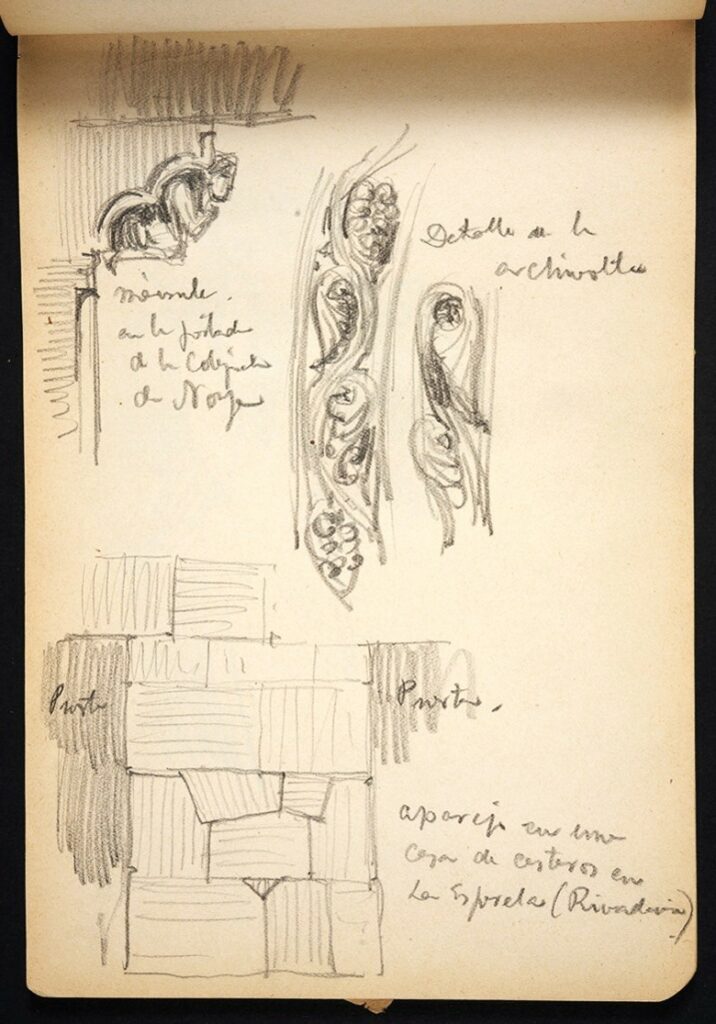 ménsula.
en la portada
de la Colegiata
de Noya
Detalle de la
archivolta
Puerta
Puerta.
aparejo en una
casa de cesteros en
La Esproela (Rivadavia)